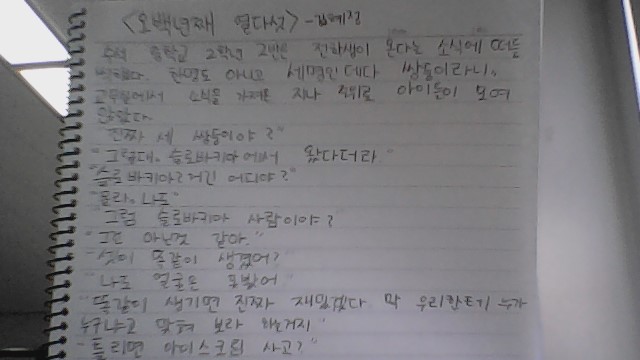 <오백년째 열다섯> - 김혜정
수석 중학교 2학년 2반은 전학생이 온다는 소식에 떠들
썩했다. 한명도 아니고 세명인데다 쌍둥이라니.
교무실에서 소식을 가져온 지나 주위로 아이들이 모여
들었다.
"진짜 세 쌍둥이야?"
"그렇대. 슬로바키아에서 왔다더라"
"슬로바키아? 거긴 어디야?"
"몰라. 나도"
"그럼 슬로바키아 사람이야?
"그건 아닌것 같아."
"셋이 똑같이 생겼어?"
"나도 얼굴은 못봤어"
"똑같이 생기면 진짜 재밌겠다 막 우리한테 누가
누구냐고 맞혀 보라 하는거지"
"틀리면 아이스크림 사고?"